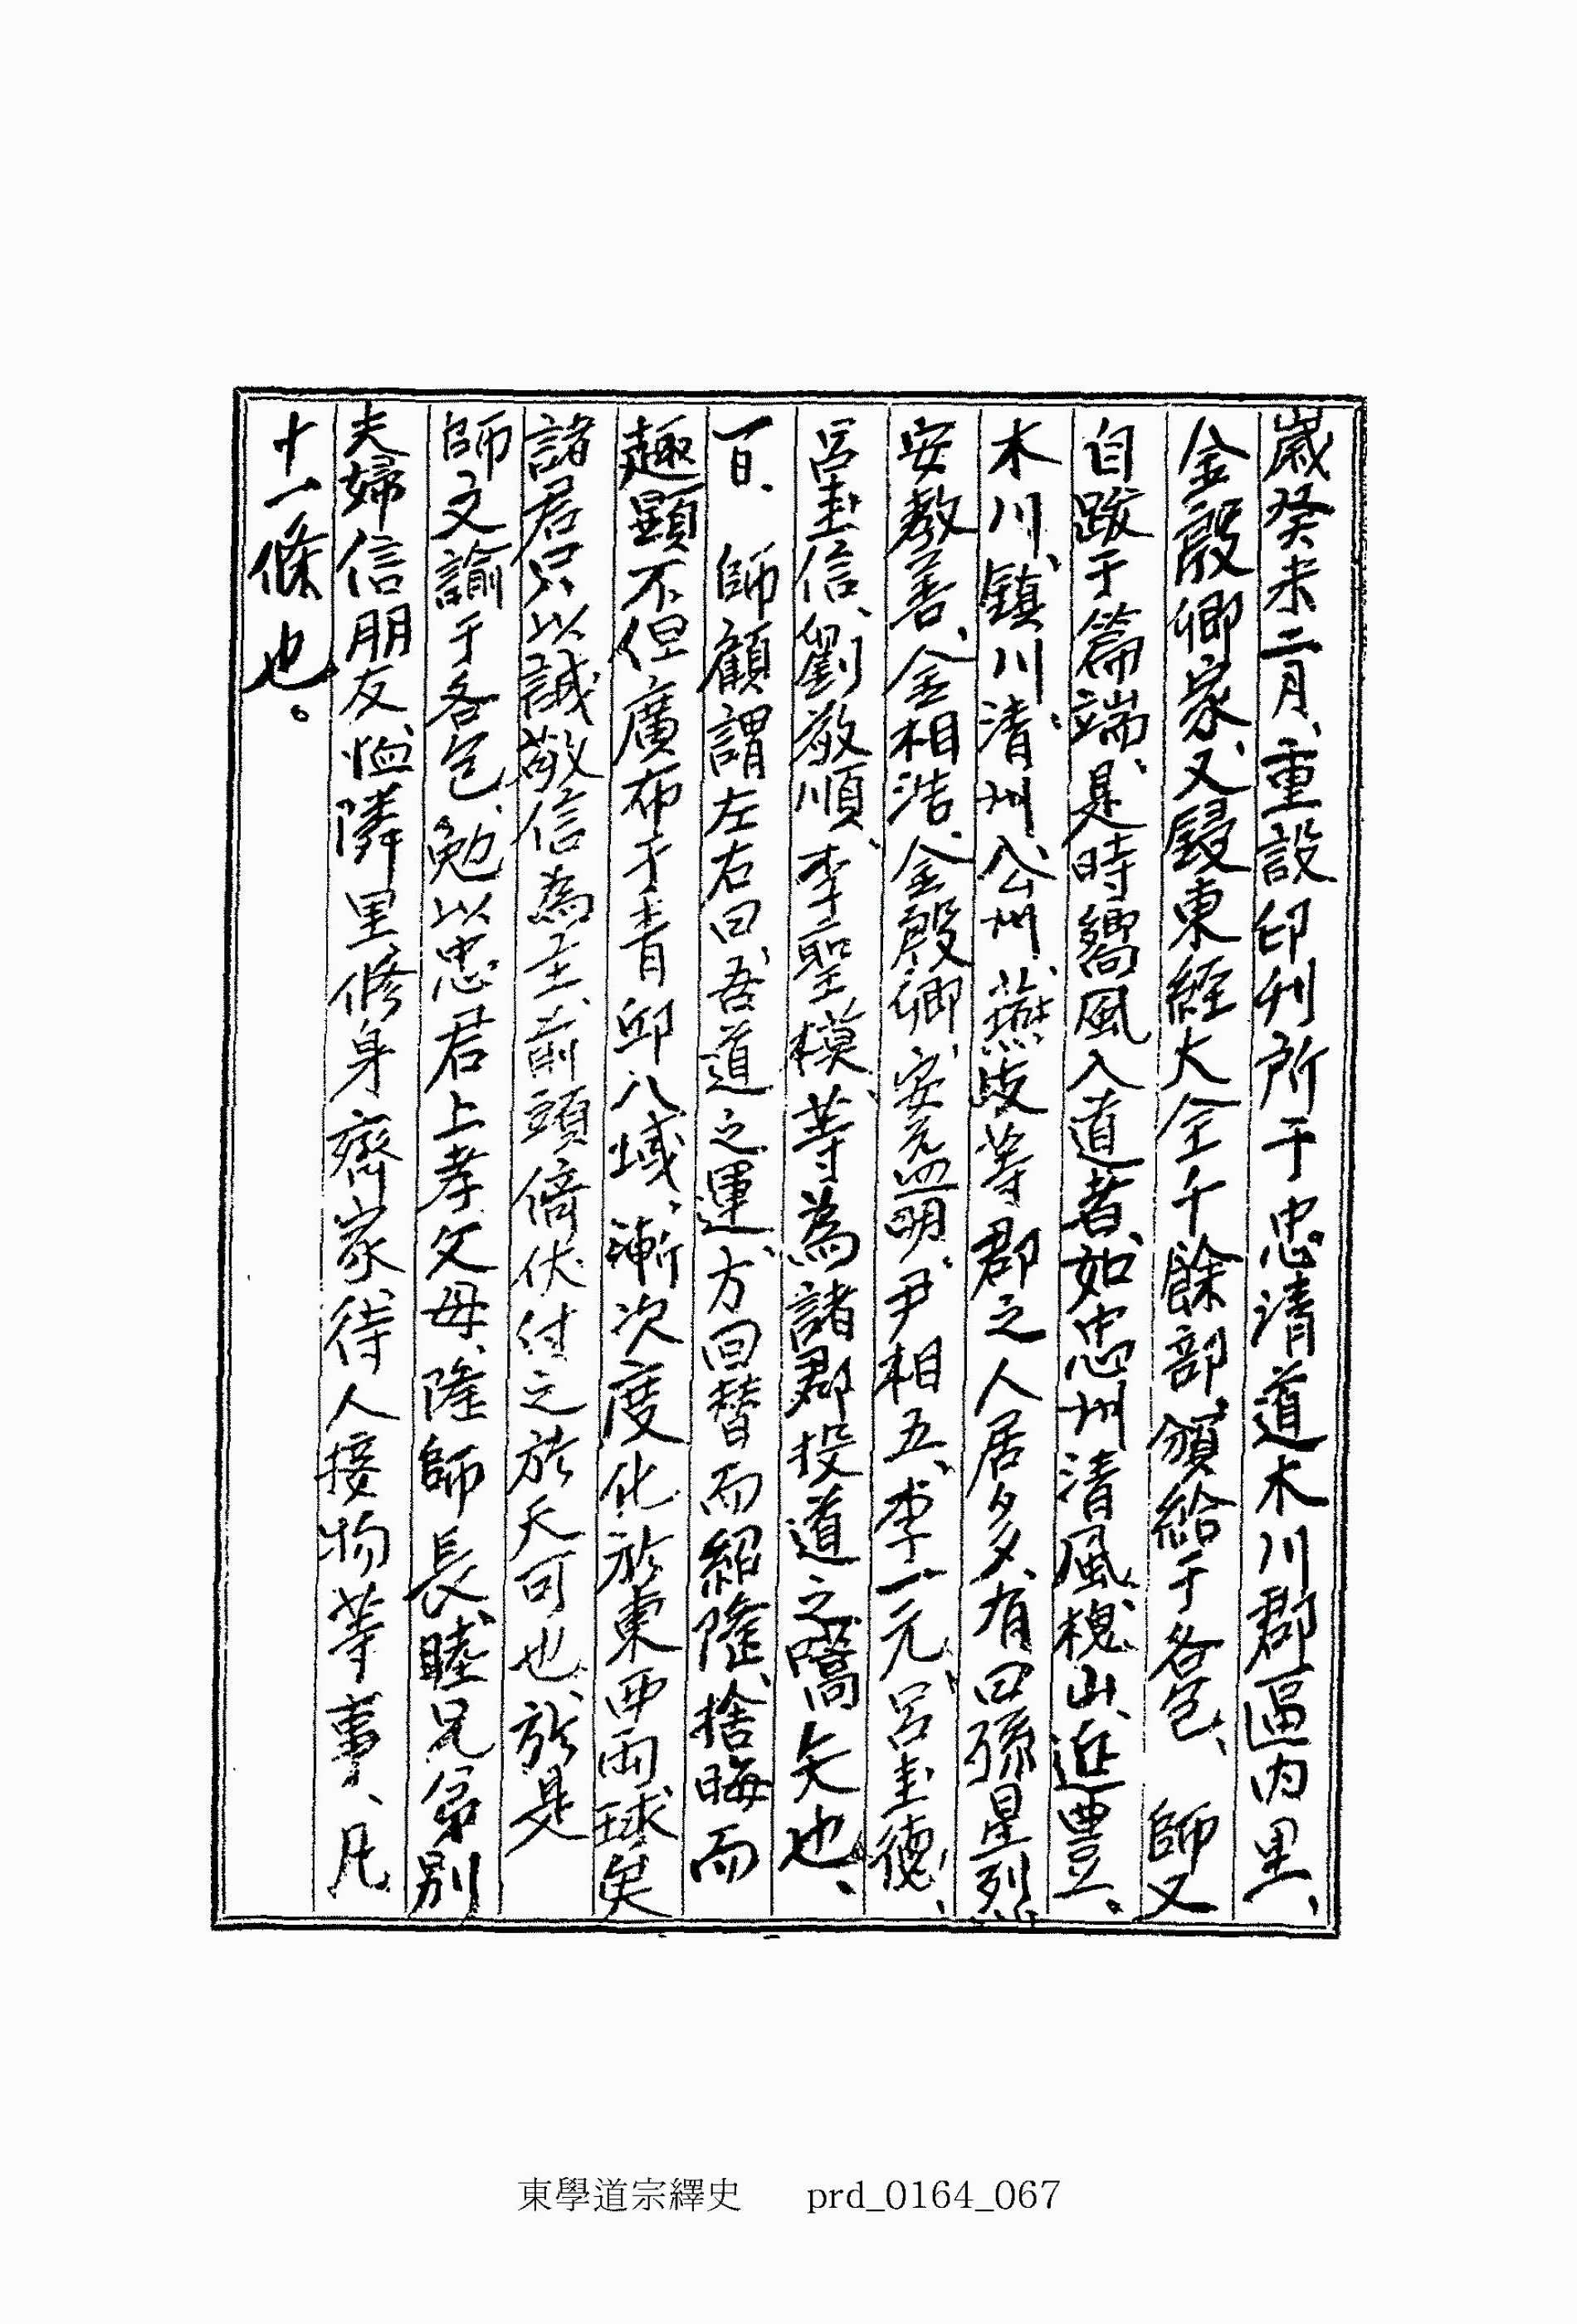 歲癸未二月、重設印刊所于忠清道木川郡區內里、
金殷卿家、又鋟東經大全千餘部、頒給于各包、　師又
自跋于篇端、是時嚮風入道者、如忠州清風、槐山、延豊、
木川、鎮川、清州、公州、燕歧等郡之人居多、有曰孫星烈、
安教善、金相浩、金殷卿、安益明、尹相五、李一元、呂圭德、
呂圭信、劉敬順、李聖模、等為諸郡投道之嚆矢也、
一日、　師顧謂左右曰、吾道之運、方回替而紹隆、捨晦而
趣顯不但廣布于青邱八域、漸次度化於東西兩球矣
諸君只以誠敬信為主、前頭倚伏付之於天可也、於是
師文諭于各包、勉以忠君上孝父母、隆師長、睦兄弟別
夫婦信朋友、恤隣里修身齊家、待人接物等事、凡
十一條也。
東學道宗繹史　prd_0164_067